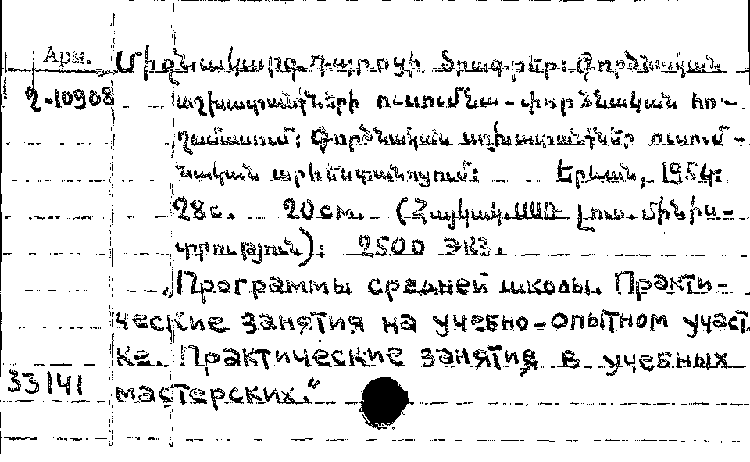 Арм. Միջնակարգ դպրոցի ծրագրեր: Գործնական
2-10908 աշխատանքների ուսումնա-փորձնական հո-
ղամասում: Գործնական աշխատանքներ ուսում-
նական արհեստանոցում: Երևան, 1954:
28с. 20см. (Հայկակ. ՍՍՌ լուս. մինիս-
տրություն): 2500 экз.
„Программы средней школы. Практи-
ческие занятия на учебно-опытном участ
ке. Практические занятия в учебных
33141 мастерских."